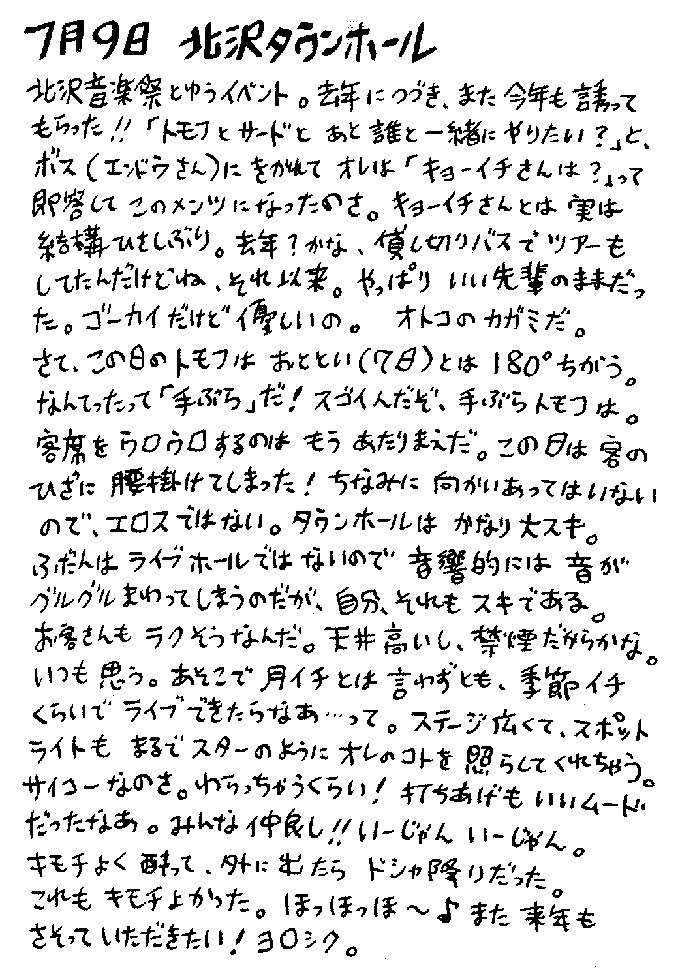 7月9日 北沢タウンホール
北沢音楽祭とゆうイベント。去年につづき、また今年も誘って
もらった!!「トモフとサードと あと誰と一緒にやりたい?」と、
ボス(エンドウさん)にきかれて オレは「キョーイチさんは?」って
即答して このメンツになったのさ。キョーイチさんとは 実は
結構ひさしぶり。去年?かな、貸し切りバスでツアーも
してたんだけどね、それ以来。やっぱり いい先輩のままだっ
た。ゴーカイだけど優しいの。 オトコのカガミだ。
さて、この日のトモフは おととい(7日)とは 180°ちがう。
なんてったって「手ぶら」だ!スゴイんだぞ、手ぶらトモフは。
客席をウロウロするのは もう あたりまえだ。この日は 客の
ひざに 腰掛けてしまった!ちなみに 向かいあってはいない
ので、エロスではない。タウンホールは かなり大スキ。
ふだんは ライブホールではないので 音響的には 音が
グルグルまわってしまうのだが、自分、それもスキである。
お客さんも ラクそうなんだ。天井高いし、禁煙だからかな。
いつも思う。あそこで 月イチとは 言わずとも、季節イチ
くらいで ライブできたらなあ…って。ステージ広くて、スポット
ライトも まるでスターのように オレのコトを 照らしてくれちゃう。
サイコーなのさ。わらっちゃうくらい!打ちあげも いいムード
だったなあ。みんな仲良し!!いーじゃん いーじゃん。
キモチよく 酔って、外に出たら ドシャ降りだった。
これも キモチよかった。ほっほっほ〜♪ また 来年も
さそっていただきたい!ヨロシク。